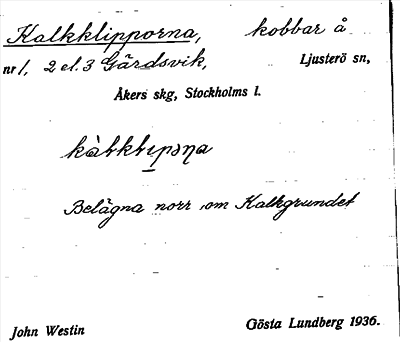 Kalkklipporna, kobbar å
nr 1, 2 el. 3 Gärdsvik, Ljusterö sn,
Åkers skg, Stockholms l.
Belägna norr om Kalkgrundet
John Westin Gösta Lundberg 1936.